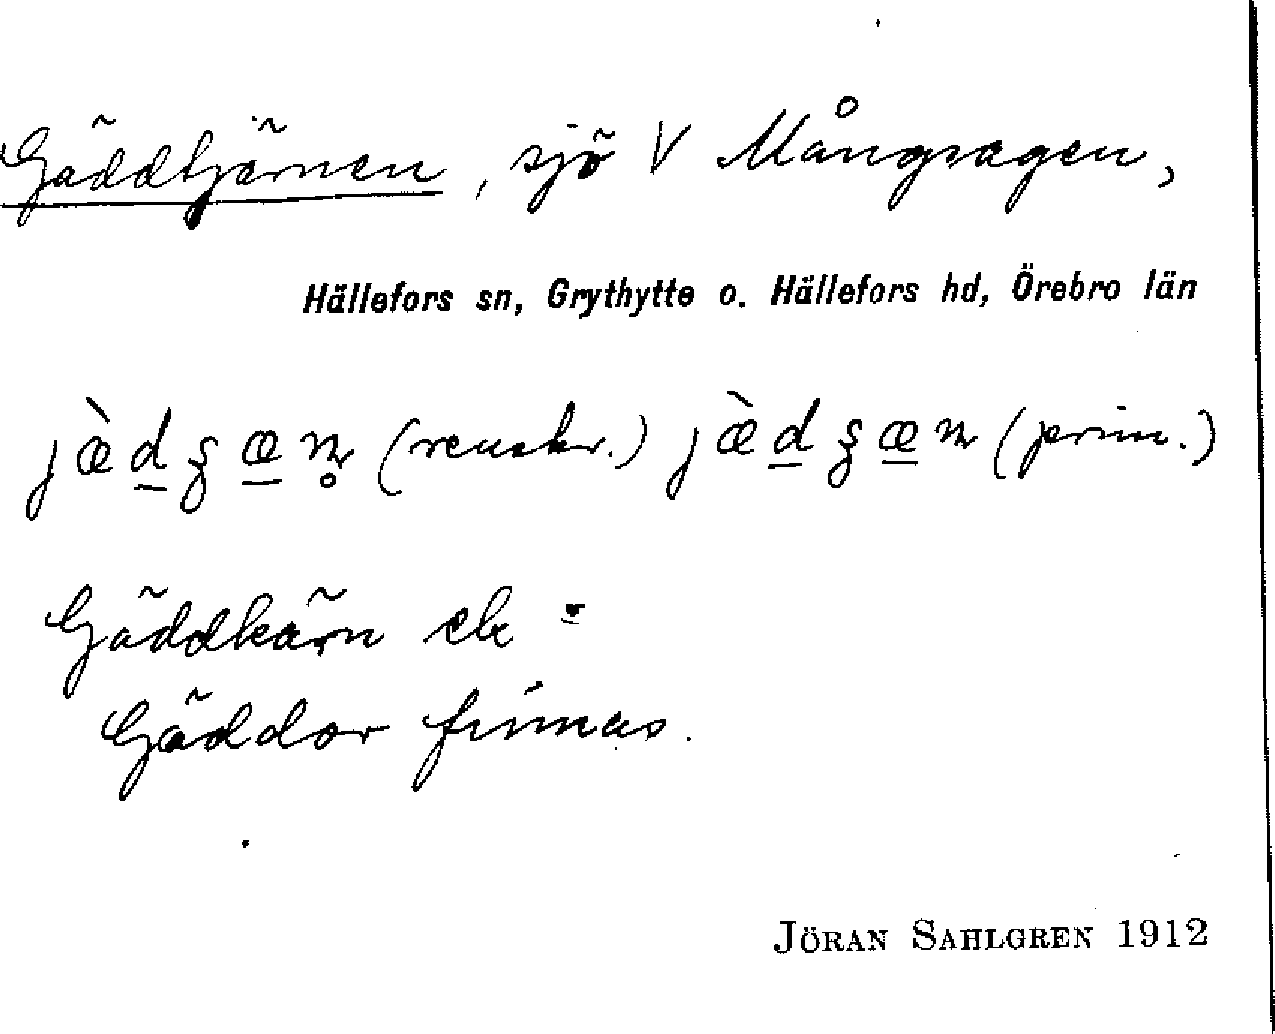 Gäddtjärnen, sjö V Mångsagen,
Hällefors sn, Grythytte o. Hällefors hd, Örebro län
(renskr.) (prim.)
Gäddkärn ek
Gäddor finnas.
JÖRAN SAHLGREN 1912